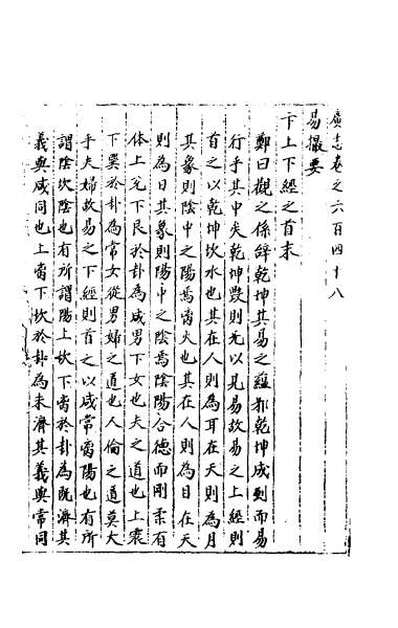 廣志卷之六百四十八
易撮要
卞上下經之首末
鄭曰觀之係辭乾坤其易之蘊邪乾坤成列而易
行乎其中矣乾坤毀則无以見易故易之上經則
首之以乾坤坎水也其在人則為耳在天則為月
其象則陰中之陽焉离火也其在人則為目在天
則為日其象則陽中之陰焉陰陽合德而剛柔有
体上兊下艮於卦為咸男下女也夫之道也上震
下巽於卦為常女從男婦之道也人倫之道莫大
乎夫婦故易之下經則首之以咸常离陽也有所
謂陰坎陰也有所謂陽上坎下离於卦為既濟其
義與咸同也上离下坎於卦為未濟其義與常同